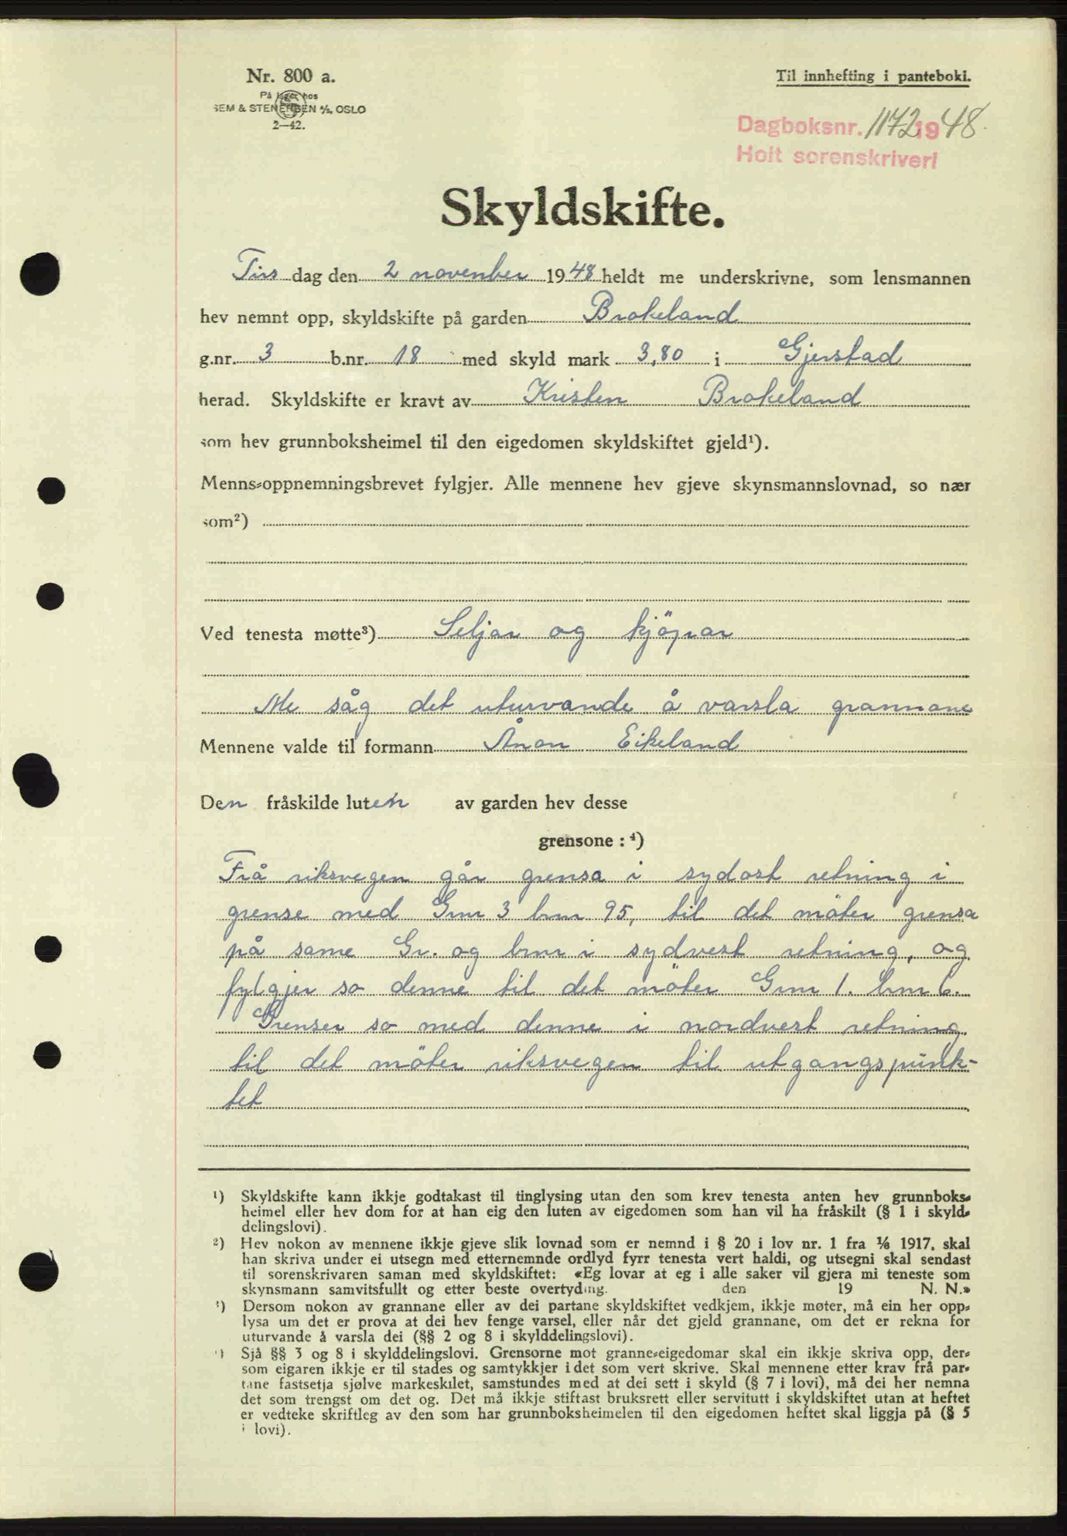 Nr. 800 a.
På lager hos
SEM & STENERSEN A/S, OSLO
2—42.
Til innhefting i panteboki.
Dagboksnr. 1172 1948.
Holt sorenskriveri
Skyldskifte.
Tirs dag den 2 november 1948 heldt me underskrivne, som lensmannen
hev nemnt opp, skyldskifte på garden Brokeland
g.nr. 3 b.nr. 18 med skyld mark 3,80 i Gjerstad
herad. Skyldskifte er kravt av Kristen Brokeland
som hev grunnboksheimel til den eigedomen skyldskiftet gjeld¹).
Menns-oppnemningsbrevet fylgjer. Alle mennene hev gjeve skynsmannslovnad, so nær
som²)
Ved tenesta møtte³) Seljar og kjöpar
Me såg det uturvande å varsla grannane
Mennene valde til formann Ånon Eikeland
Den fråskilde luten av garden hev desse
grensone : ⁴)
Frå riksvegen går grensa i sydost retning i
grense med Gnr 3 bnr 95, til det möter grensa
på same Gr. og bnr i sydvest retning, og
fylgjer so denne til det möter Gnr 1. bnr 6.
Grenser so med denne i nordvest retning
til det möter riksvegen til utgangspunk-
tet
¹) Skyldskifte kann ikkje godtakast til tinglysing utan den som krev tenesta anten hev grunnboks-
heimel eller hev dom for at han eig den luten av eigedomen som han vil ha fråskilt (§ 1 i skyld-
delingslovi).
²) Hev nokon av mennene ikkje gjeve slik lovnad som er nemnd i § 20 i lov nr. 1 fra 1/6 1917, skal
han skriva under ei utsegn med etternemnde ordlyd fyrr tenesta vert haldi, og utsegni skal sendast
til sorenskrivaren saman med skyldskiftet: «Eg lovar at eg i alle saker vil gjera mi teneste som
skynsmann samvitsfullt og etter beste overtyding. den 19 N. N.»
³) Dersom nokon av grannane eller av dei partane skyldskiftet vedkjem, ikkje møter, må ein her opp-
lysa um det er prova at dei hev fenge varsel, eller når det gjeld grannane, om det er rekna for
uturvande å varsla dei (§§ 2 og 8 i skylddelingslovi).
⁴) Sjå §§ 3 og 8 i skylddelingslovi. Grensorne mot granne-eigedomar skal ein ikkje skriva opp, der-
som eigaren ikkje er til stades og samtykkjer i det som vert skrive. Skal mennene etter krav frå par-
tane fastsetja sjølve markeskilet, samstundes med at dei sett i skyld (§ 7 i lovi), må dei her nemna
det som trengst om det og. Det må ikkje stiftast bruksrett eller servitutt i skyldskiftet utan at heftet
er vedteke skriftleg av den som har grunnboksheimelen til den eigedomen heftet skal liggja på (§ 5
i lovi).